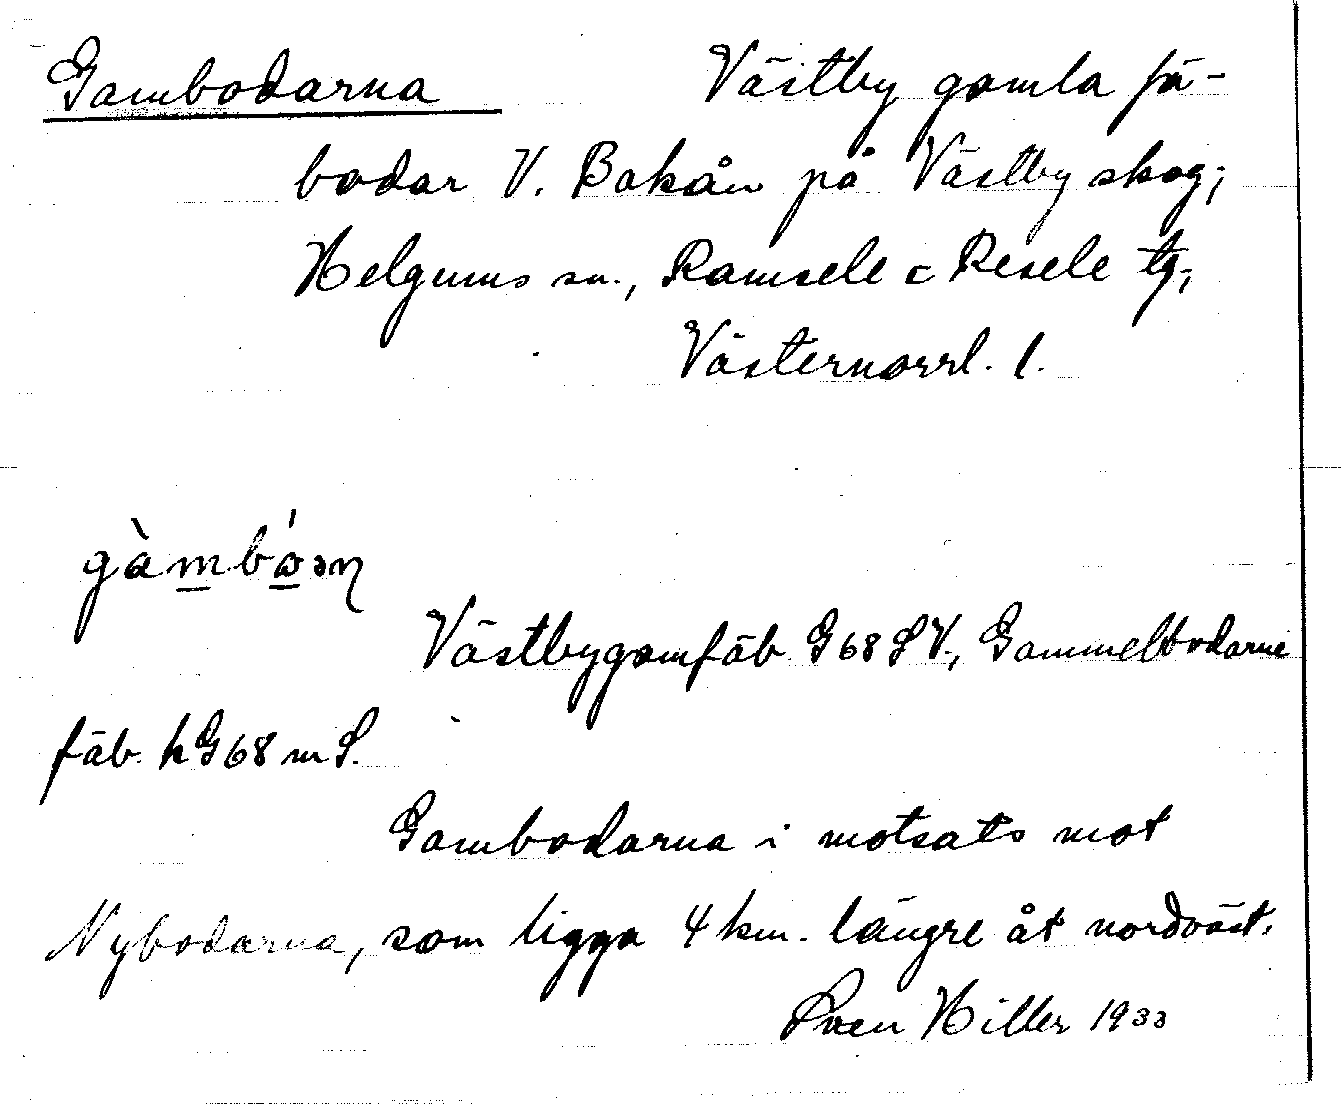 Gambodarna Västby gamla fä-
bodar V. Bakån på Västby skog;
Helgums sn., Ramsele o Resele tg,
Västernorrl. l.
gàmbó̀ən
Västbygamfäb G68SV., Gammelbodarne
fäb. hG68mS.
Gambodarna i motsats mot
Nybodarna, som ligga 4 km. längre åt nordväst.
Sven Hiller 1933